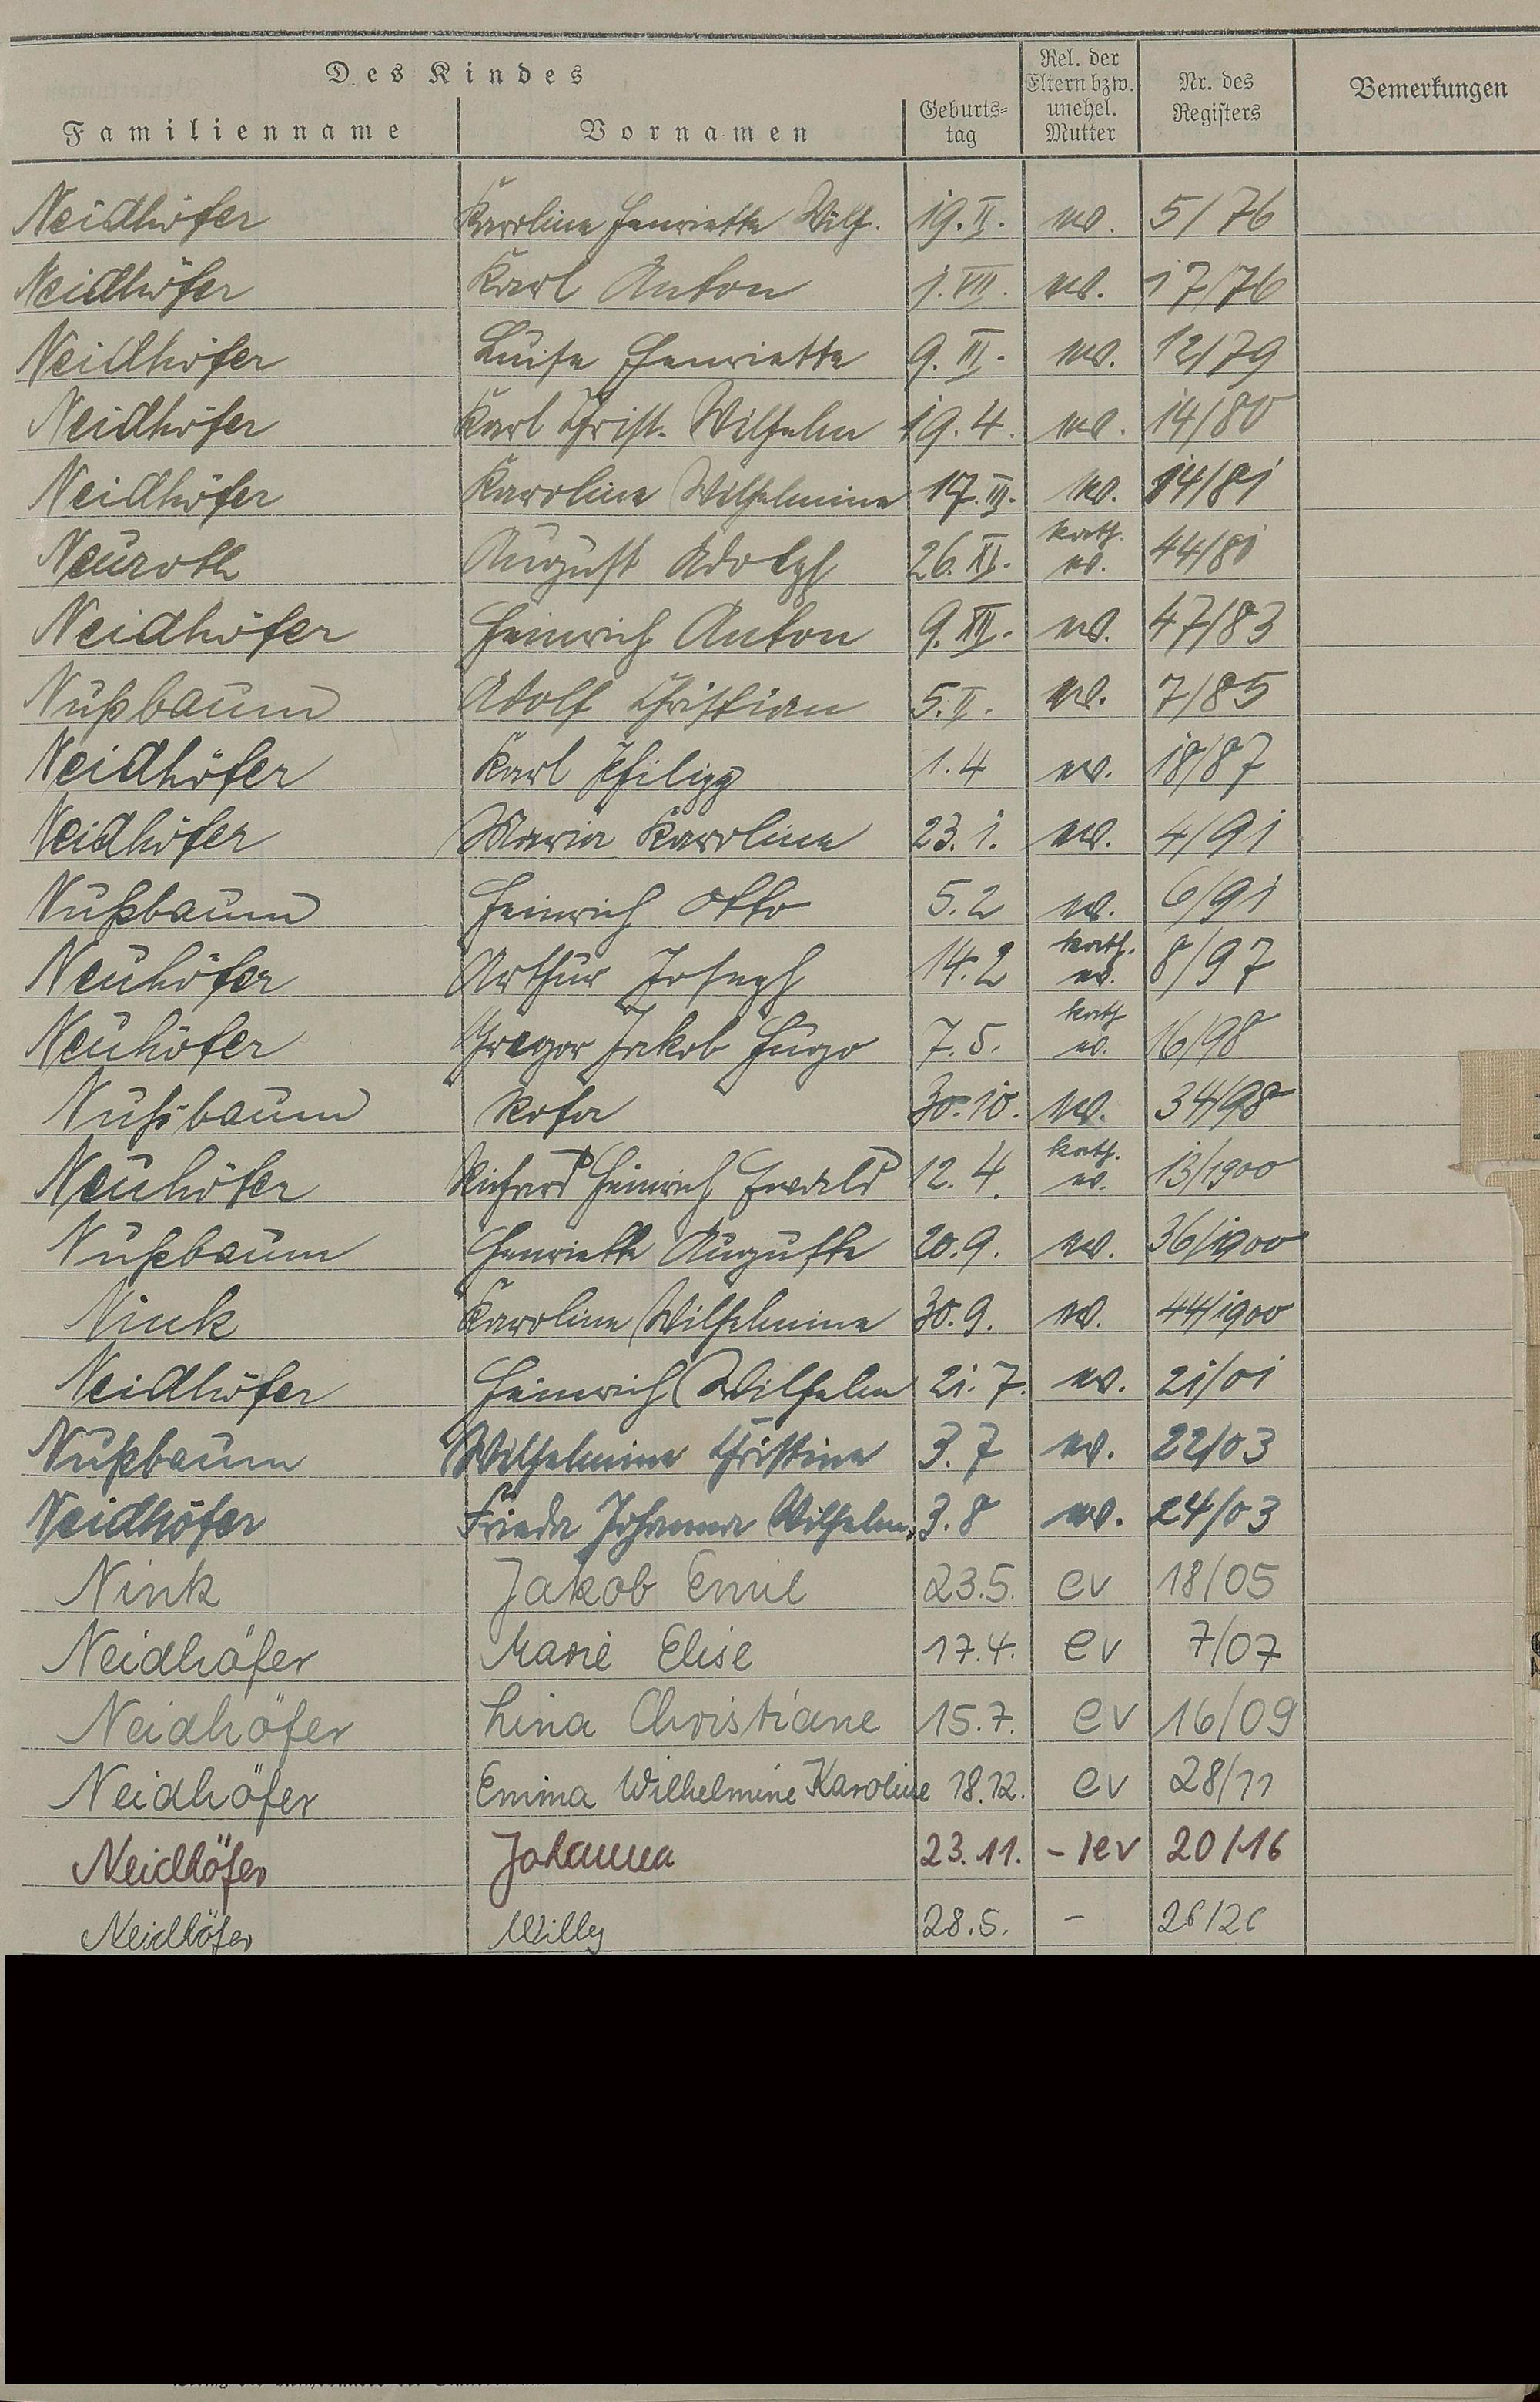 Des Kindes
Familienname Vornamen Geburts- tag Rel. der Eltern bzw. unehel. Mutter Nr. des Registers Bemerkungen
Neidhöfer Karoline Henriette Wilh. 19. II. ev. 5/76
Neidhöfer Karl Anton 1. VII. ev. 17/76
Neidhöfer Luise Henriette 9. III. ev. 12/79
Neidhöfer Karl Christ. Wilhelm 19. 4. ev. 14/80
Neidhöfer Karoline Wilhelmine 17. III. ev. 14/81
Neuroth August Adolph 26. XI. kath. ev. 44/81
Neidhöfer Heinrich Anton 9. XII. ev. 47/83
Nußbaum Adolf Christian 5. II. ev. 7/85
Neidhöfer Karl Philipp 1. 4 ev. 18/87
Neidhöfer Maria Karoline 23. 1. ev. 4/91
Nußbaum Heinrich Otto 5. 2 ev. 6/91
Neuhöfer Arthur Joseph 14. 2 kath. ev. 8/97
Neuhöfer Gregor Jakob Hugo 7. 5. kath ev. 16/98
Nußbaum Rosa 30. 10. ev. 34/98
Neuhöfer Richard Heinrich Ewald 12. 4. kath. ev. 13/1900
Nußbaum Henriette Auguste 20. 9. ev. 36/1900
Nink Karoline Wilhelmine 30. 9. ev. 44/1900
Neidhöfer Heinrich Wilhelm 21. 7. ev. 21/01
Nußbaum Wilhelmine Christine 3. 7 ev. 22/03
Neidhöfer Frieda Johanna Wilhelm. 3. 8 ev. 24/03
Nink Jakob Emil 23.5. ev 18/05
Neidhöfer Marie Elise 17.4. ev 7/07
Neidhöfer Lina Christiane 15.7. ev 16/09
Neidhöfer Emma Wilhelmine Karoline 18.12. ev 28/11
Neidhöfer Johanna 23.11. -/ev 20/16
Neidhöfer Willy 28.5. - 26/26